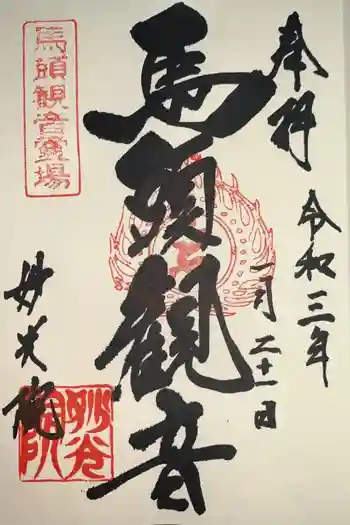 奉拝
令和三年
一月二十一日
馬頭観音
馬頭観音霊場
妙光院